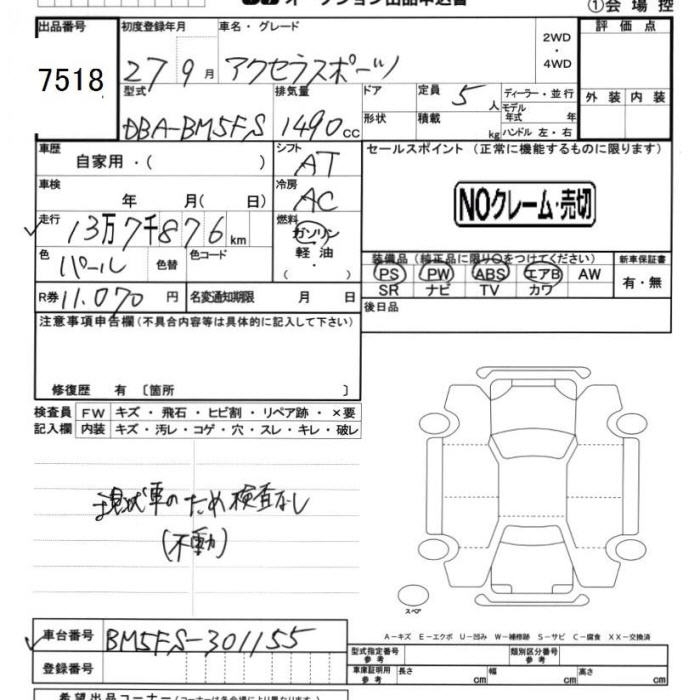 オークション出品申込書
①会場控
出品番号 初度登録年月 車名・グレード 評価点
7518 27 9月 アクセラスポーツ 2WD・4WD
型式 排気量 ドア 定員 5人 ディーラー・並行 外装 内装
DBA-BM5FS 1490cc 形状 積載 kg モデル年式 年
ハンドル 左・右
車歴 自家用・( ) シフト AT セールスポイント (正常に機能するものに限ります)
車検 年 月( 日) 冷房 AC NOクレーム・売切
走行 13万7千876km 燃料 ガソリン
軽油
( ・ )
色 パール 色替 色コード 装備品 (純正品に限り○をつけてください) 新車保証書
PS PW ABS エアB AW 有・無
SR ナビ TV カワ
R券 11,070円 名変通知期限 月 日 後日品
注意事項申告欄(不具合内容等は具体的に記入して下さい)
修復歴 有 〔箇所 〕
検査員 FW キズ・飛石・ヒビ割・リペア跡・×要
記入欄 内装 キズ・汚レ・コゲ・穴・スレ・キレ・破レ
現状車のため検査なし
(不動)
スペア
車台番号 BM5FS-301155
A-キズ E-エクボ U-凹み W-補修跡 S-サビ C-腐食 XX-交換済
登録番号 型式指定番号 参考 類別区分番号 参考
車庫証明用 参考 長さ cm 幅 cm 高さ cm
希望出品コーナー